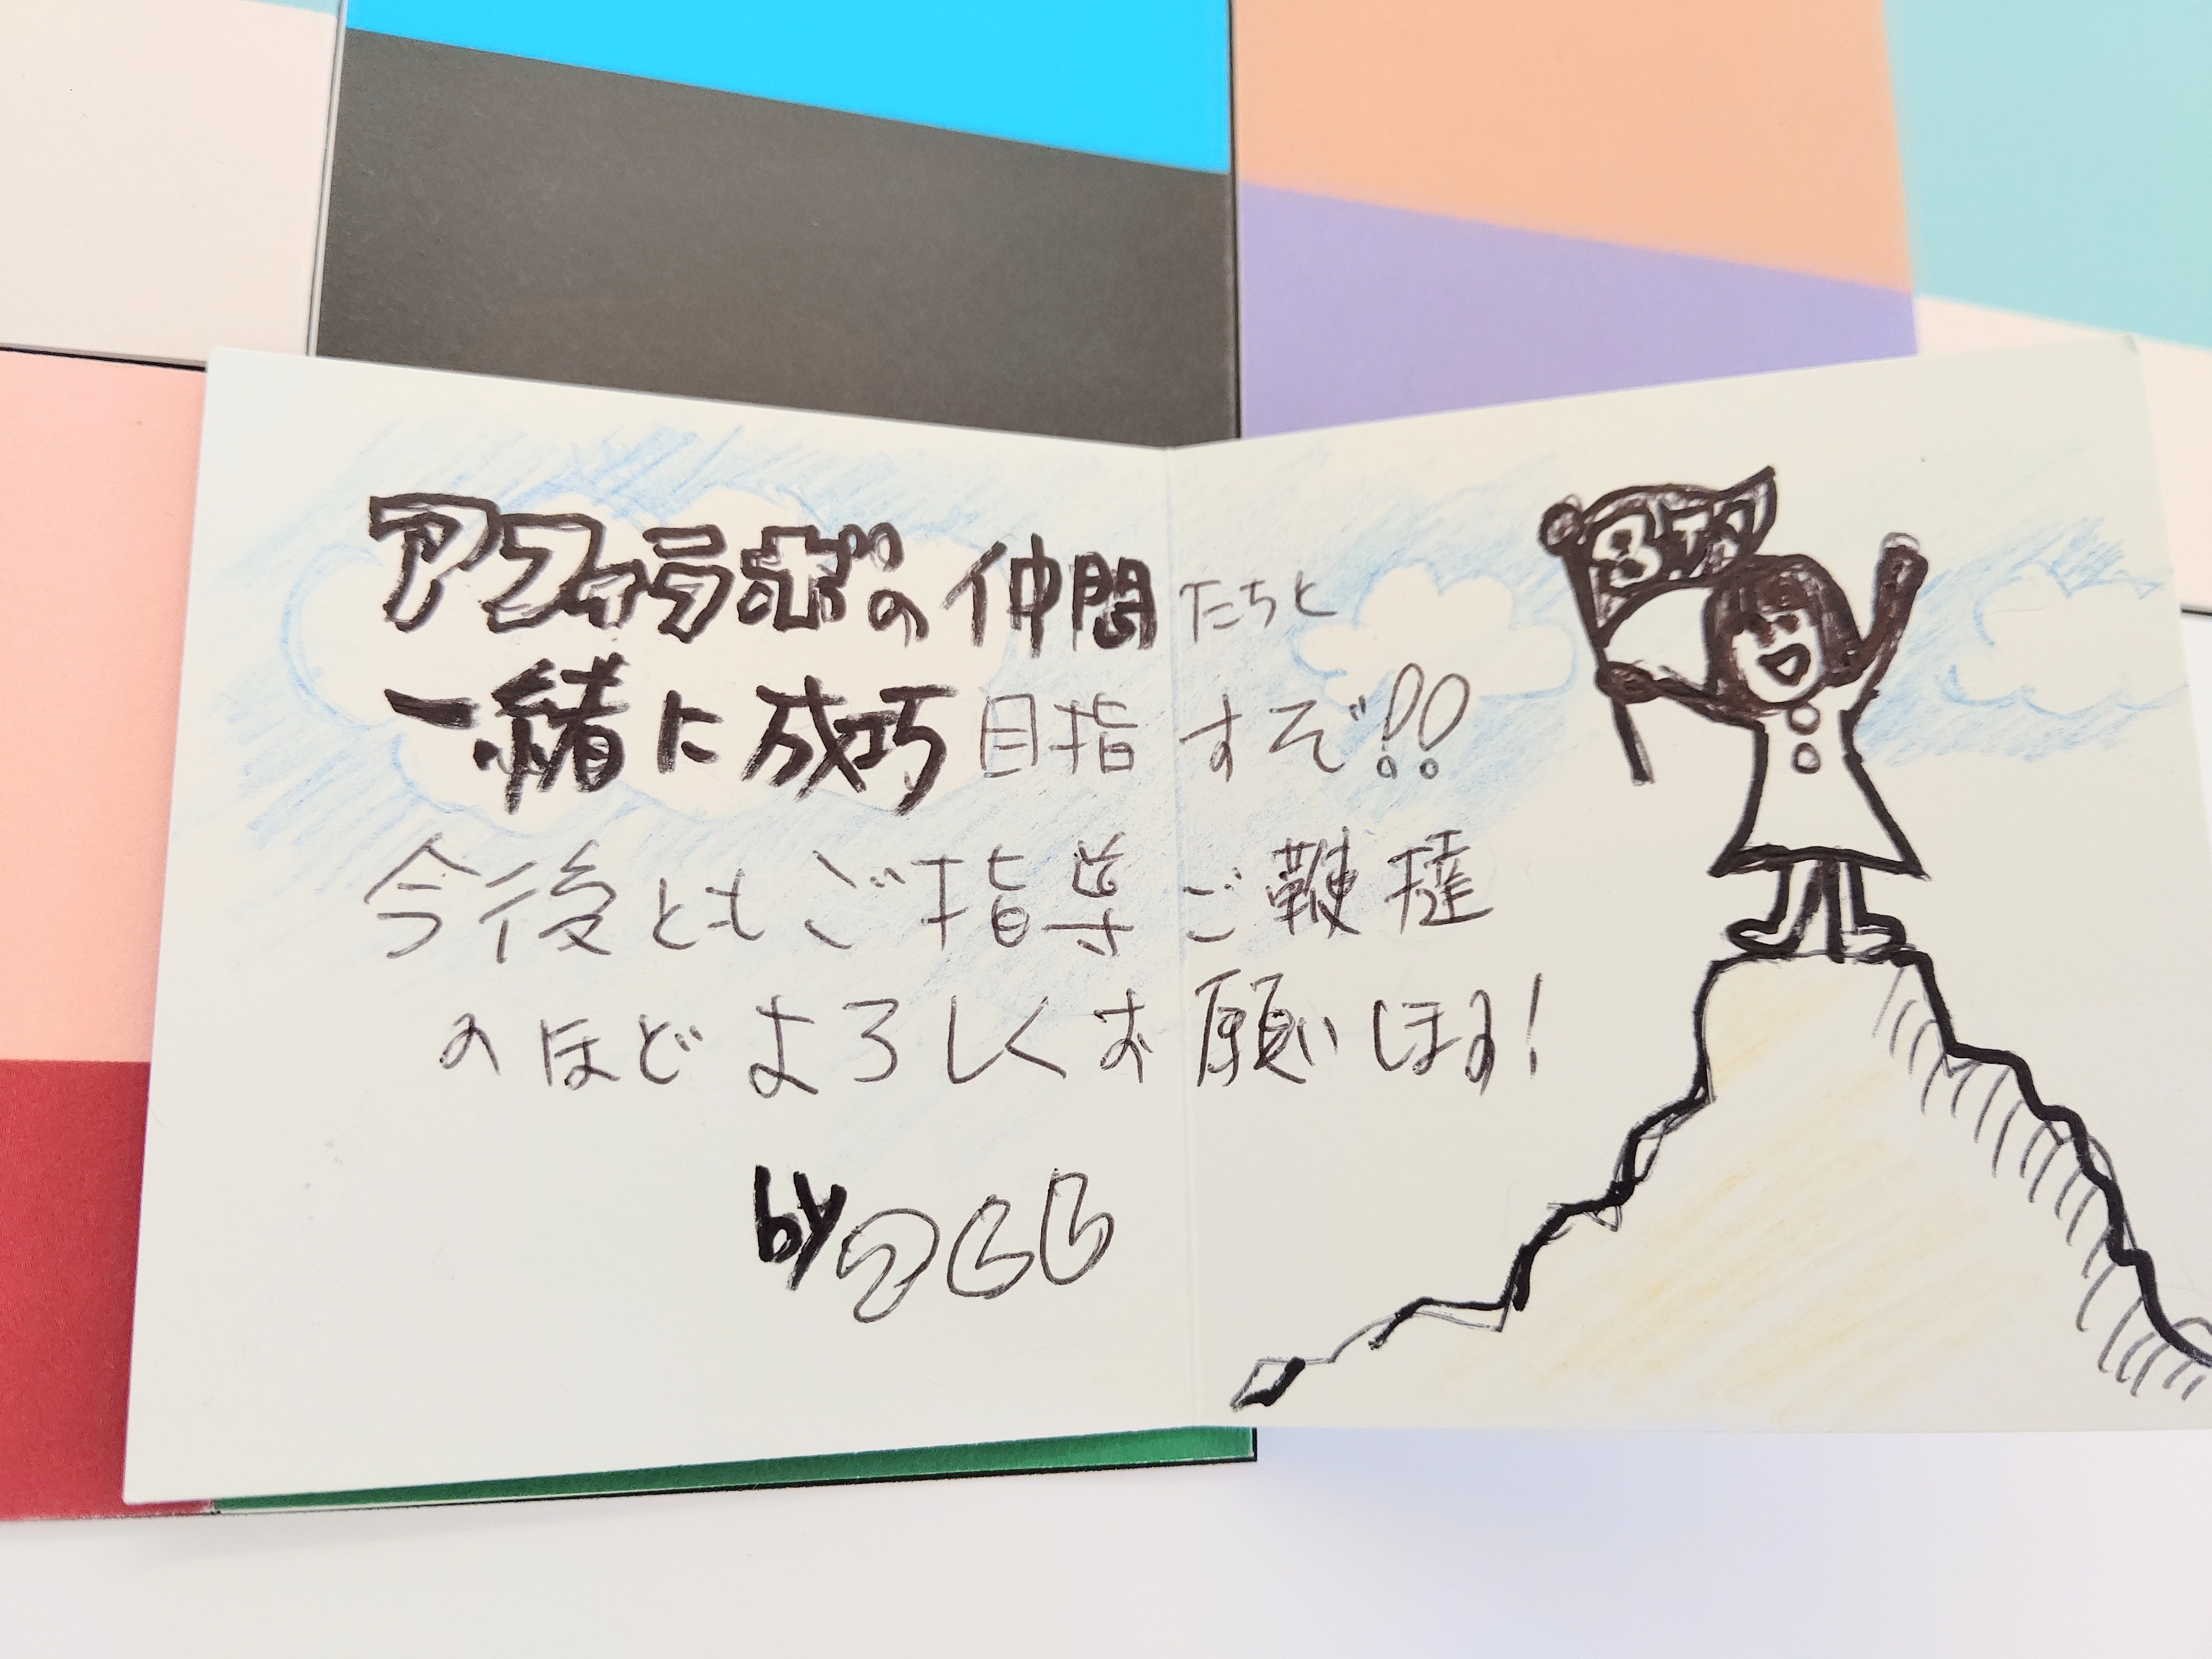 アフィラボの仲間たちと
一緒に成功目指すぞ!!
今後ともご指導ご鞭撻
のほどよろしくお願いします!
by